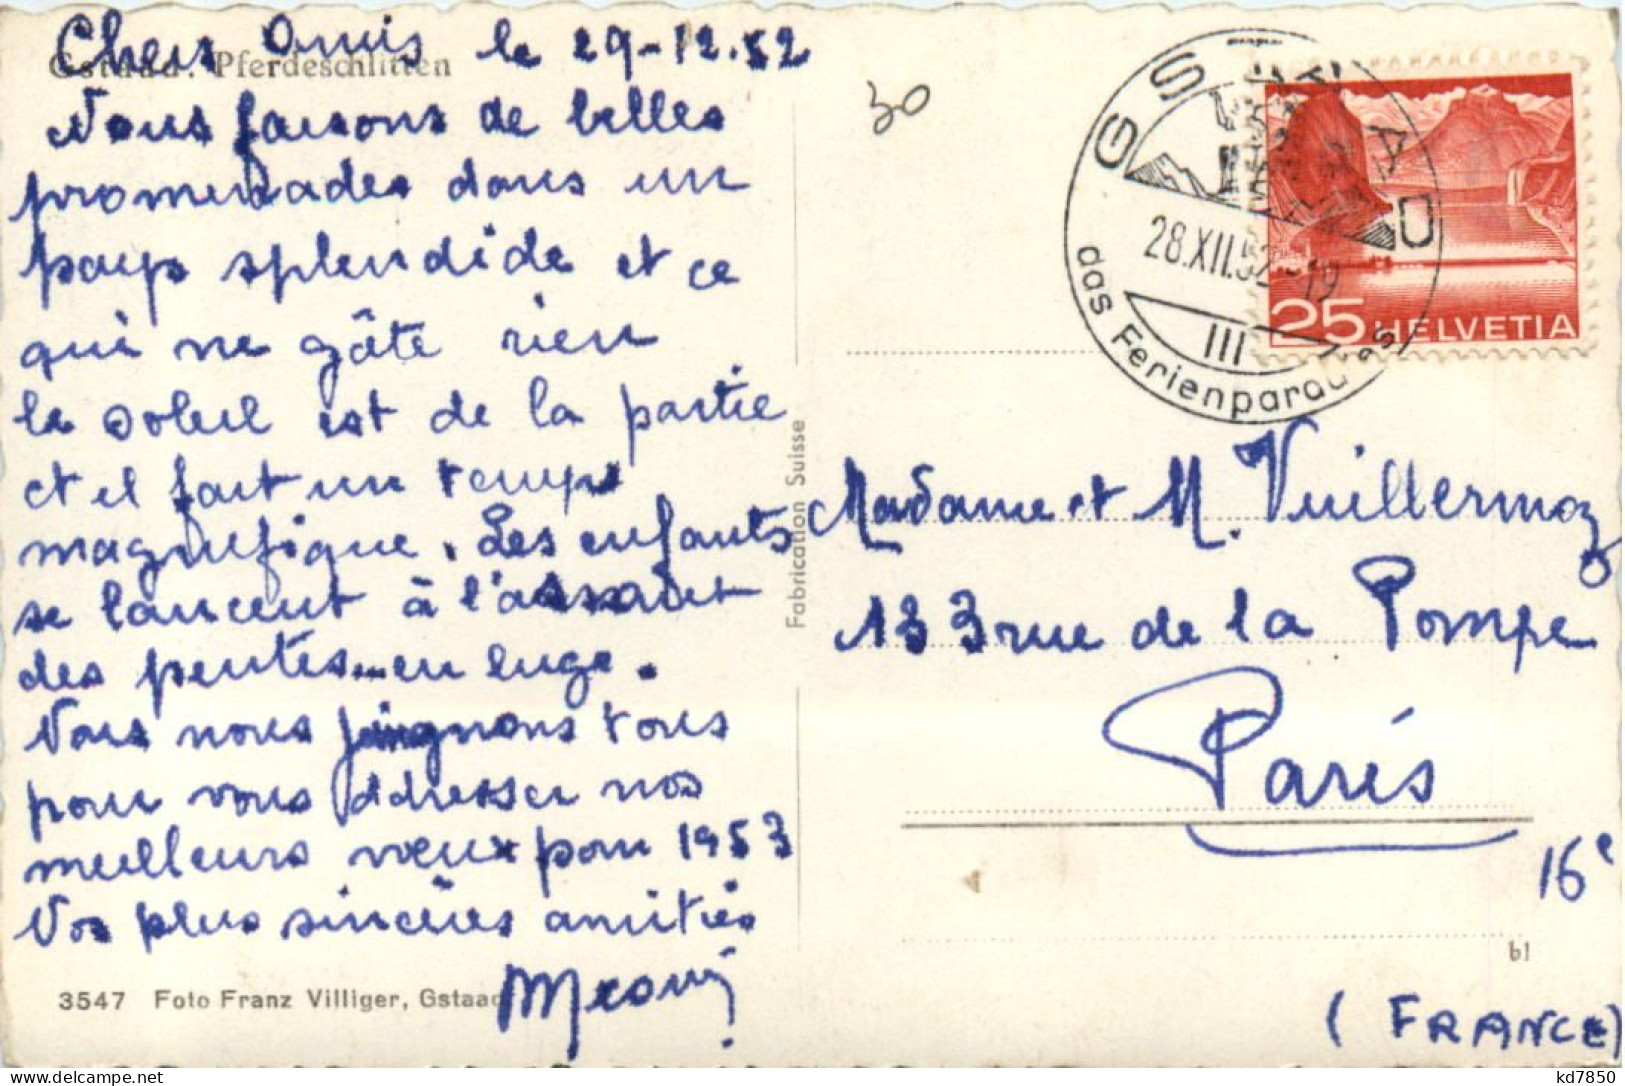 Chers Amis le 29-12.52
Gstaad. Pferdeschlitten
Nous faisons de belles
promenades dans un
pays splendide et ce
qui ne gâte rien
le soleil est de la partie
et il fait un temps
magnifique. Les enfants
se lancent à l'assaut
des pentes...en luge.
Nous nous joignons tous
pour vous adresser nos
meilleurs vœux pour 1953
Nos plus sincères amitiés
3547 Foto Franz Villiger, Gstaad
Fabrication Suisse
30
GSTAAD
28.XII.52-19
III
das Ferienparadies
25 HELVETIA
Madame et M. Vuillermoz
133 rue de la Pompe
Paris
16e
bl
(FRANCE)
kd7850